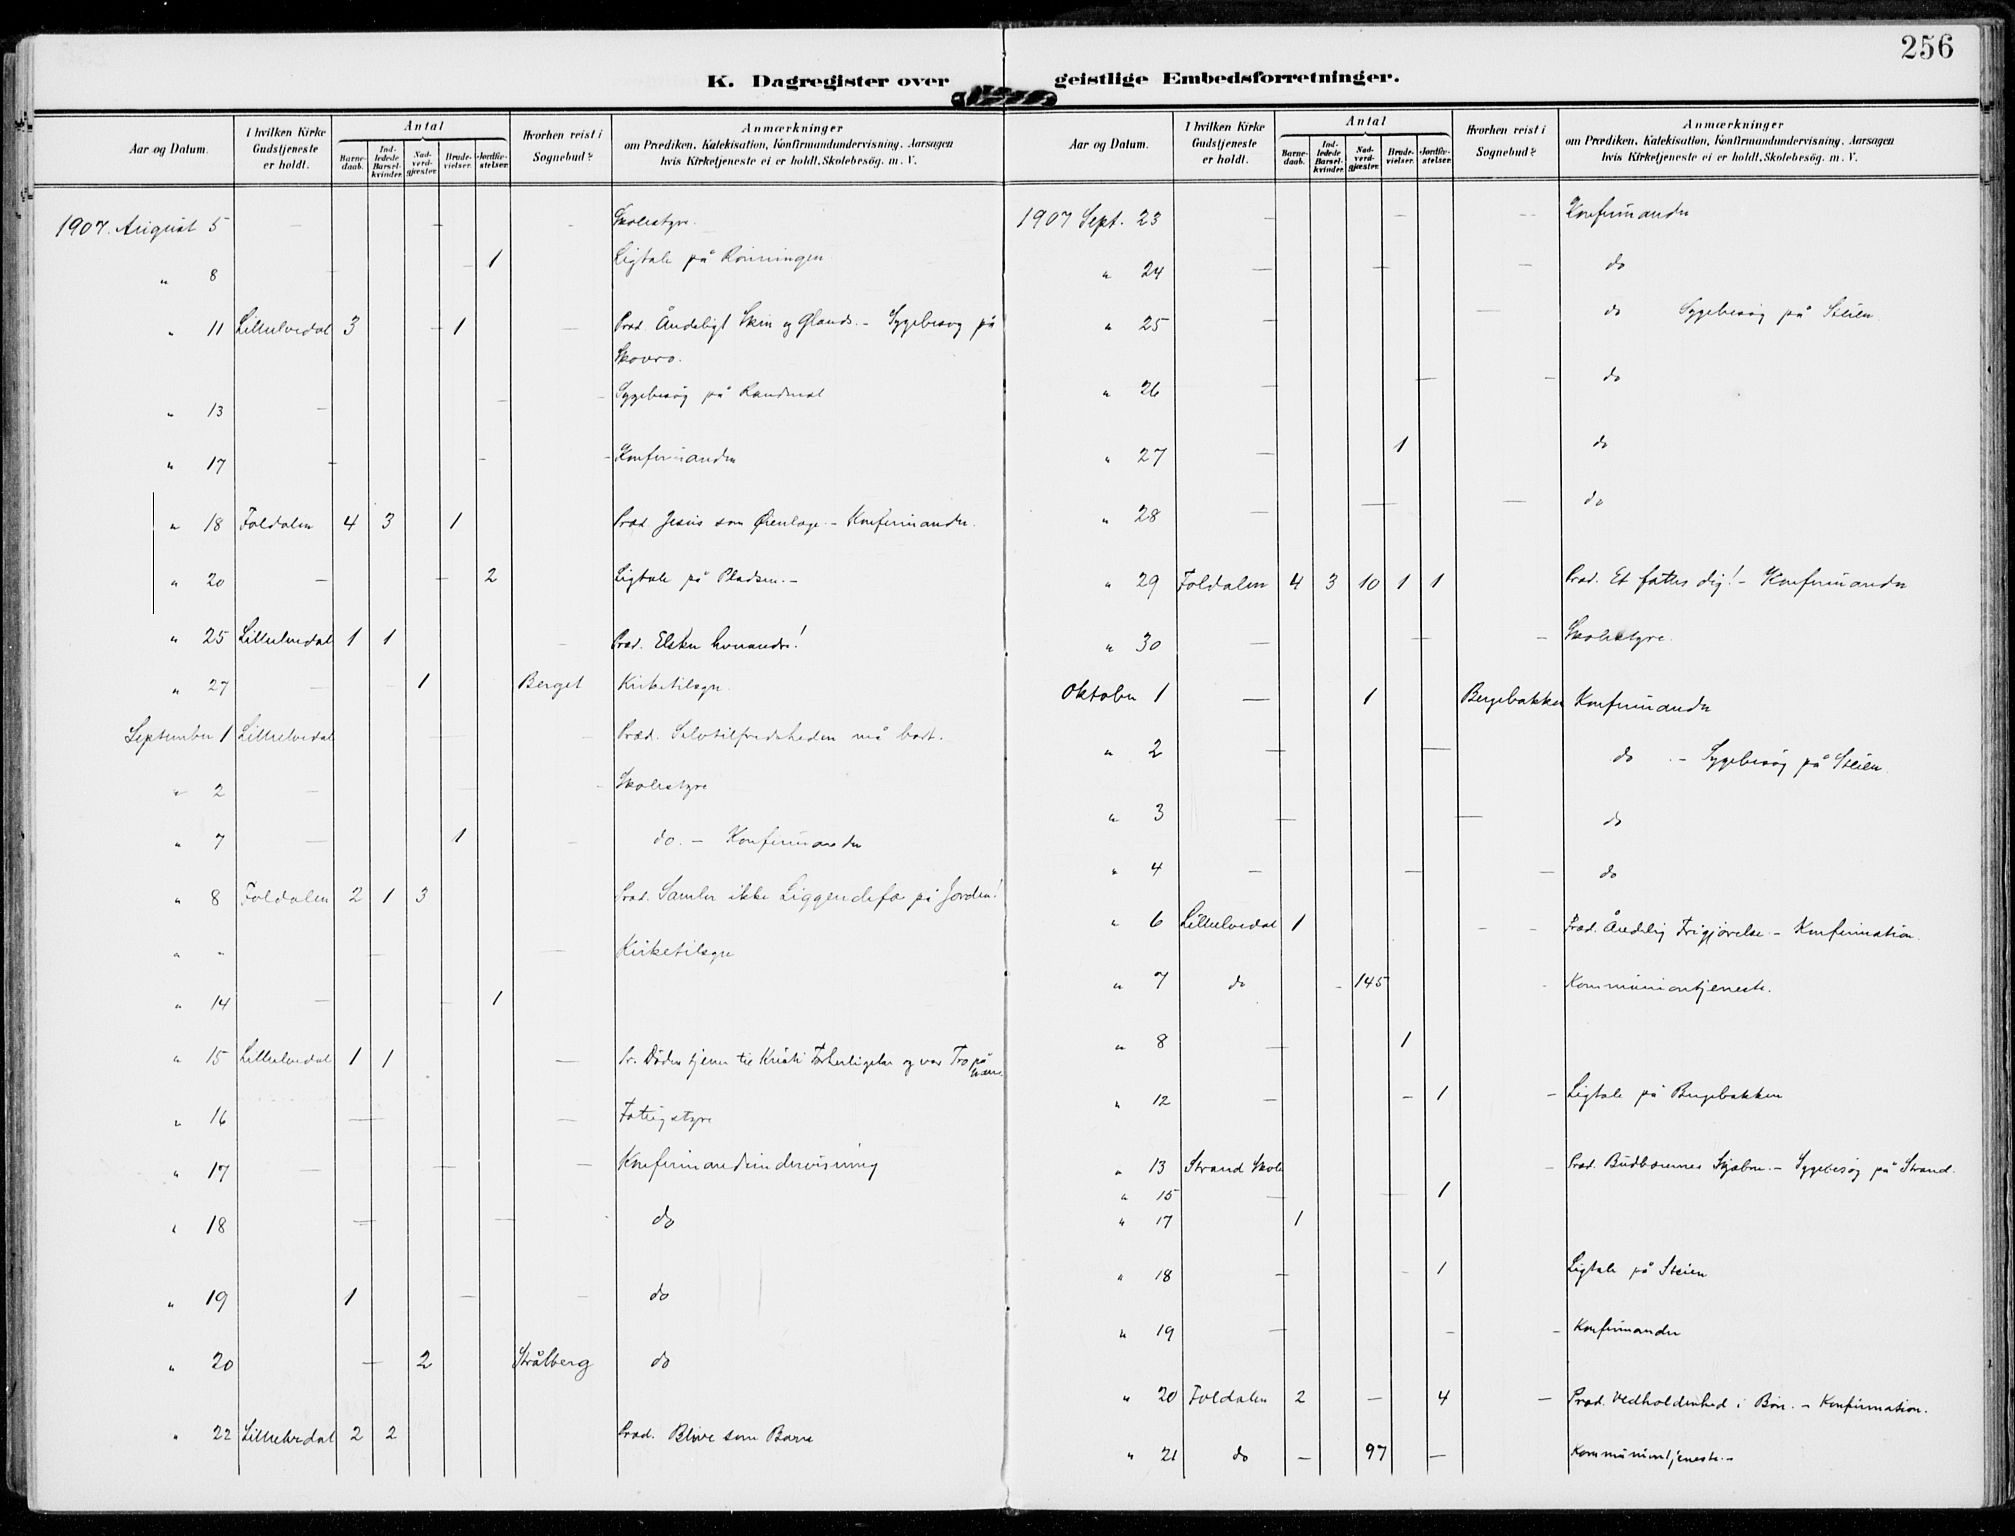 256
K. Dagregister over geistlige Embedsforretninger.
Aar og Datum.
I hvilken Kirke Gudstjeneste er holdt.
Antal
Barnedaab.
Indledede Barselkvinder.
Nadverdgjæster.
Brudevielser.
Jordfæstelser.
Hvorhen reist i Sognebud?
Anmærkninger
om Prædiken, Katekisation, Konfirmandundervisning, Aarsagen
hvis Kirketjeneste ei er holdt, Skolebesøg. m. V.
1907. August 5 — — - Skolestyre.
" 8 - - 1 Ligtale på Rønningen
" 11 Lilleelvedal 3 - 1 — Præd. Åndeligt Skin og Glands. - Sygebesøg på
Skovro.
" 13 — — - Sygebesøg på
" 17 - - - Konfirmander
" 18 Foldalen 4 3 1 Præd. Jesus som Øienlæge. - Konfirmander.
" 20 — - 2 Ligtale på Pladsen. -
" 25 Lilleelvedal 1 1 — Præd. Elsker hverandre!
" 27 — - 1 Berget Kirketilsyn.
September 1 Lilleelvedal — — Præd. Selvtilfredsheden må bort.
" 2 — — - Skolestyre
" 7 — 1 - do. - Konfirmander
" 8 Foldalen 2 1 3 Præd. Samler ikke Liggendefæ på Jorden!
" " — — Kirketilsyn
" 14 — - 1
" 15 Lilleelvedal 1 1 — Pr. Døden tjener til Kristi Forherligelse og vor Tro på
ham.
" 16 — — Fattigstyre
" 17 — — - Konfirmandundervisning
" 18 — — do
" 19 1 — - do
" 20 — 2 Strålberg do
" 22 Lilleelvedal 2 2 Præd. Blive som Børn
Aar og Datum.
I hvilken Kirke Gudstjeneste er holdt.
Antal
Barnedaab.
Indledede Barselkvinder.
Nadverdgjæster.
Brudevielser.
Jordfæstelser.
Hvorhen reist i Sognebud?
Anmærkninger
om Prædiken, Katekisation, Konfirmandundervisning, Aarsagen
hvis Kirketjeneste ei er holdt, Skolebesøg. m. V.
1907 Sept. 23 — - -- Konfirmander
" 24 — — — do
" 25 — do Sygebesøg på Steien.
" 26 — — - do
" 27 — 1 do
" 28 — — — do
" 29 Foldalen 4 3 10 1 1 Præd. Et fattes dig! - Konfirmander
" 30 — — - Skolestyre.
Oktober 1 — 1 Bergebakken Konfirmander
" 2 — — do - Sygebesøg på Steien
" 3 — — do
" 4 — — — do
" 6 Lilleelvedal 1 - - Præd. Åndelig Frigjørelse. - Konfirmation.
" 7 do - 145 - Kommuniontjeneste.
" 8 — 1
" 12 — - 1 - Ligtale på Bergebakken
" 13 Strand Skole - Præd. Budbærernes Skjæbne. - Sygebesøg på Strand.
" 15 — — 1
" 17 1
" 18 — - 1 Ligtale på Steien
" 19 — - - Konfirmander
" 20 Foldalen 2 — 4 — Præd. Vedholdenhed i Bøn. - Konfirmation.
" 21 do — 97 — Kommuniontjeneste. -